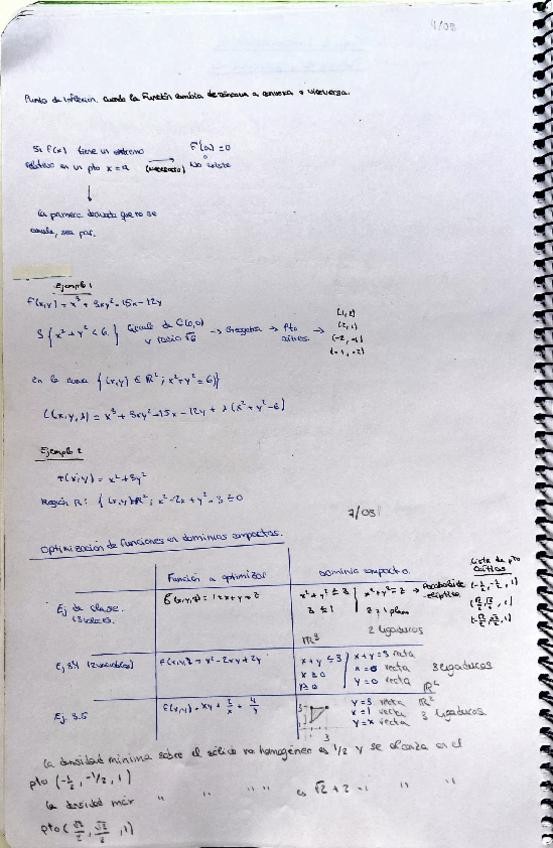 4/03
Punto de inflexión. cuando la Función cambia de cóncava a convexa o viceversa.
Si f(x) tiene un extremo F'(a) = 0
relativo en un pto x = a (necesario) o No existe
↓
la primera derivada que no se
anule, sea par.
Ejemplo 1
F(x,y) = x³ + 3xy² - 15x - 12y
S { x² + y² < 6 } Círculo de C(0,0) y radio √6 → → Pto críticos → (1,2)
(2,1)
(-2,-1)
(-1,-2)
En la {(x,y) ∈ ℝ² ; x² + y² = 6)}
L(x,y,λ) = x³ + 3xy² - 15x - 12y + λ(x² + y² - 6)
Ejemplo 2
T(x,y) = x² + 3y²
Región R: { (x,y) ℝ² ; x² - 2x + y² - 3 ≤ 0
7/03
Optimización de funciones en dominios compactos.
Función a optimizar Dominio compacto. Lista de pto críticos
Ej de clase. x² + y² ≤ z x² + y² = z → Paraboloide elíptico (-½, -½, 1)
z ≤ 1 z = 1 plano (√2/2, √2/2, 1)
ℝ³ 2 ligaduras (-√2/2, √2/2, 1)
Ej 3.4 (2 variables) F(x,y) = x² - 2xy + 2y x + y ≤ 3 x + y = 3 recta
x ≥ 0 x = 0 recta 3 ligaduras
y ≥ 0 y = 0 recta
Ej. 3.5 F(x,y) = xy + 2/x + 4/y y = 3 recta ℝ²
x = 1 recta 3 ligaduras
y = x recta
La densidad mínima sobre el sólido no homogéneo es 1/2 y se alcanza en el
pto (-½, -1/2, 1)
La densidad máx " " " " es √2 + 2 " " "
pto (√2/2, √2/2, 1)